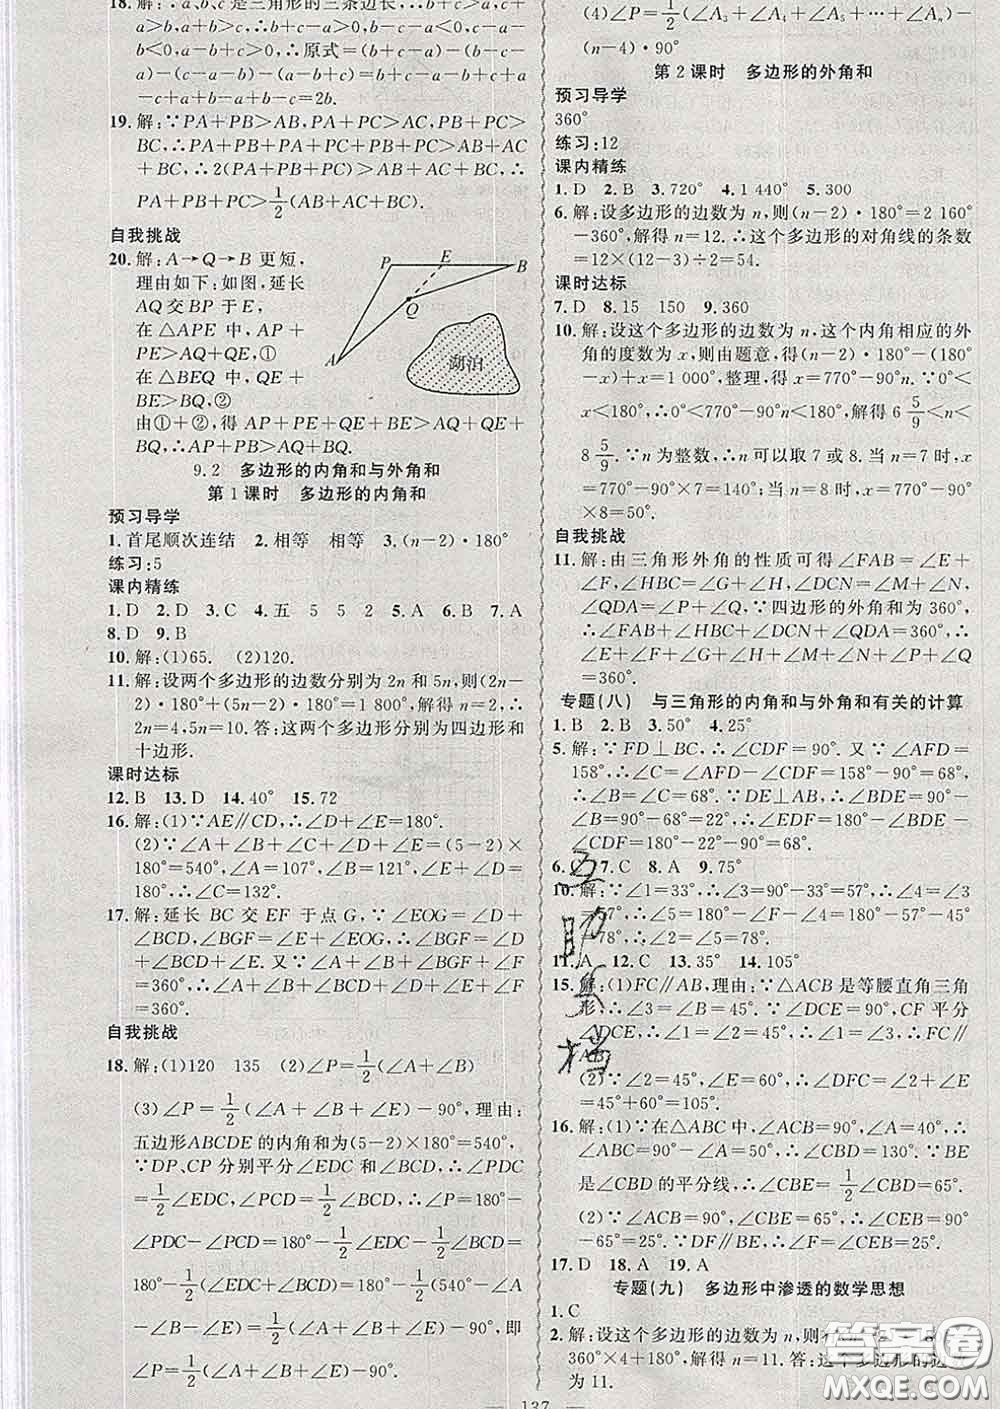 18. 解:∵a、b、c是三角形的三条边长,∴b+c-
a>0,b+a-c>0,∴b-c-a<0,b-c+
a>0,a-b+c>0,∴原式=(b+c-a)-(b-c-
a)+(b-c+a)-(a-b+c)=b+c-a-b+
c+a+b-c+a-a+b-c=2b.
19. 解:∵PA+PB>AB,PA+PC>AC,PB+PC>
BC,∴PA+PB+PA+PC+PB+PC>AB+
AC+BC,∴2(PA+PB+PC)>AB+AC+BC,
∴PA+PB+PC>1/2(AB+AC+BC).
自我挑战
20. 解:A→Q→B 更短,
理由如下:如图,延长
AQ 交 BP 于 E,
在△APE 中,AP+
PE>AQ+QE,①
在△BEQ 中,QE+
BE>BQ,②
由①+②,得 AP+PE+QE+BE>AQ+QE+
BQ,∴AP+PB>AQ+BQ.
P
E
B
Q
A
湖泊
9.2 多边形的内角和与外角和
第 1 课时 多边形的内角和
预习导学
1. 首尾顺次连结 2. 相等 相等 3. (n-2)·180°
练习:5
课内精练
1. D 2. D 3. C 4. 五 5 5 2 5. A 6. B 7. A
8. D 9. B
10. 解:(1)65. (2)120.
11. 解:设两个多边形的边数分别为 2n 和 5n,则(2n-
2)·180°+(5n-2)·180°=1 800°,解得 n=2,∴
2n=4,5n=10.答:这两个多边形分别为四边形和
十边形.
课时达标
12. B 13. D 14. 40° 15. 72
16. 解:(1)∵AE∥CD,∴∠D+∠E=180°.
(2)∵∠A+∠B+∠C+∠D+∠E=(5-2)×
180°=540°,∠A=107°,∠B=121°,∠D+∠E=
180°,∴∠C=132°.
17. 解:延长 BC 交 EF 于点 G,∵∠EOG=∠D+
∠BCD,∠BGF=∠E+∠EOG,∴∠BGF=∠D
+∠BCD+∠E.又∵∠A+∠B+∠BGF+∠F
=360°,∴∠A+∠B+∠BCD+∠D+∠E+∠F
=360°.
自我挑战
18. 解:(1)120 135 (2)∠P=1/2(∠A+∠B)
(3)∠P=1/2(∠A+∠B+∠E)-90°,理由:
五边形ABCDE的内角和为(5-2)×180°=540°,
∵DP、CP 分别平分∠EDC 和∠BCD,∴∠PDC
=1/2∠EDC,∠PCD=1/2∠BCD,∴∠P=180°-
∠PDC-∠PCD=180°-1/2∠EDC-1/2∠BCD=
180°-1/2(∠EDC+∠BCD)=180°-1/2(540°-∠A
-∠B-∠E)=1/2(∠A+∠B+∠E)-90°,即
∠P=1/2(∠A+∠B+∠E)-90°.
(4)∠P=1/2(∠A3+∠A4+∠A5+…+∠An)-
(n-4)·90°
第 2 课时 多边形的外角和
预习导学
360°
练习:12
课内精练
1. D 2. B 3. 720° 4. 1 440° 5. 300
6. 解:设多边形的边数为 n,则(n-2)·180°=2 160°
-360°,解得 n=12.∴这个多边形的对角线的条数
=12×(12-3)÷2=54.
课时达标
7. D 8. 15 150 9. 360
10. 解:设这个多边形的边数为 n,这个内角相应的外
角的度数为 x,则由题意,得(n-2)·180°-(180°
-x)+x=1 000°,整理,得 x=770°-90°n.∵0°<
x<180°,∴0°<770°-90°n<180°,解得 6 5/9<n<
8 5/9.∵n 为整数,∴n 可以取 7 或 8.当 n=7 时,x
=770°-90°×7=140°;当 n=8 时,x=770°-90°
×8=50°.
自我挑战
11. 解:由三角形外角的性质可得∠FAB=∠E+
∠F,∠HBC=∠G+∠H,∠DCN=∠M+∠N,
∠QDA=∠P+∠Q,∵四边形的外角和为 360°,
∴∠FAB+∠HBC+∠DCN+∠QDA=360°,∴
∠E+∠F+∠G+∠H+∠M+∠N+∠P+∠Q=
360°.
专题(八) 与三角形的内角和与外角和有关的计算
1. B 2. B 3. 50° 4. 25°
5. 解:∵FD⊥BC,∴∠CDF=90°.又∵∠AFD=
158°,∴∠C=∠AFD-∠CDF=158°-90°=68°,
∴∠B=∠C=68°.∵DE⊥AB,∴∠BDE=90°-
∠B=90°-68°=22°,∴∠EDF=180°-∠BDE-
∠CDF=180°-22°-90°=68°.
6. C 7. C 8. A 9. 75°
10. 解:∵∠1=33°,∴∠3=90°-33°=57°,∴∠4=∠3
=57°,∴∠5=180°-∠4-45°=180°-57°-45°
=78°,∴∠2=∠5=78°.
11. A 12. C 13. 35° 14. 105°
15. 解:(1)FC∥AB,理由:∵△ACB是等腰直角三角
形,∴∠3=∠B=45°,∵∠DCE=90°,CF 平分
∠DCE,∴∠1=∠2=45°,∴∠1=∠3,∴FC∥
AB.
(2)∵∠2=45°,∠E=60°,∴∠DFC=∠2+∠E=
45°+60°=105°.
16. 解:(1)∵在△ABC 中,∠ACB=90°,∠A=40°,
∴∠ABC=90°-∠A=50°,∴∠CBD=130°.∵BE
是∠CBD 的平分线,∴∠CBE=1/2∠CBD=65°.
(2)∵∠ACB=90°,∠CBE=65°,∴∠CEB=90°-
65°=25°.∵DF∥BE,∴∠F=∠CEB=25°.
17. D 18. A 19. A
专题(九) 多边形中渗透的数学思想
1. C
2. 解:设这个多边形的边数为 n,则
360°×4+180°,解得 n=11.答:这个多边形的边
为 11.
五助文档
答案圈
MXQE.COM
137